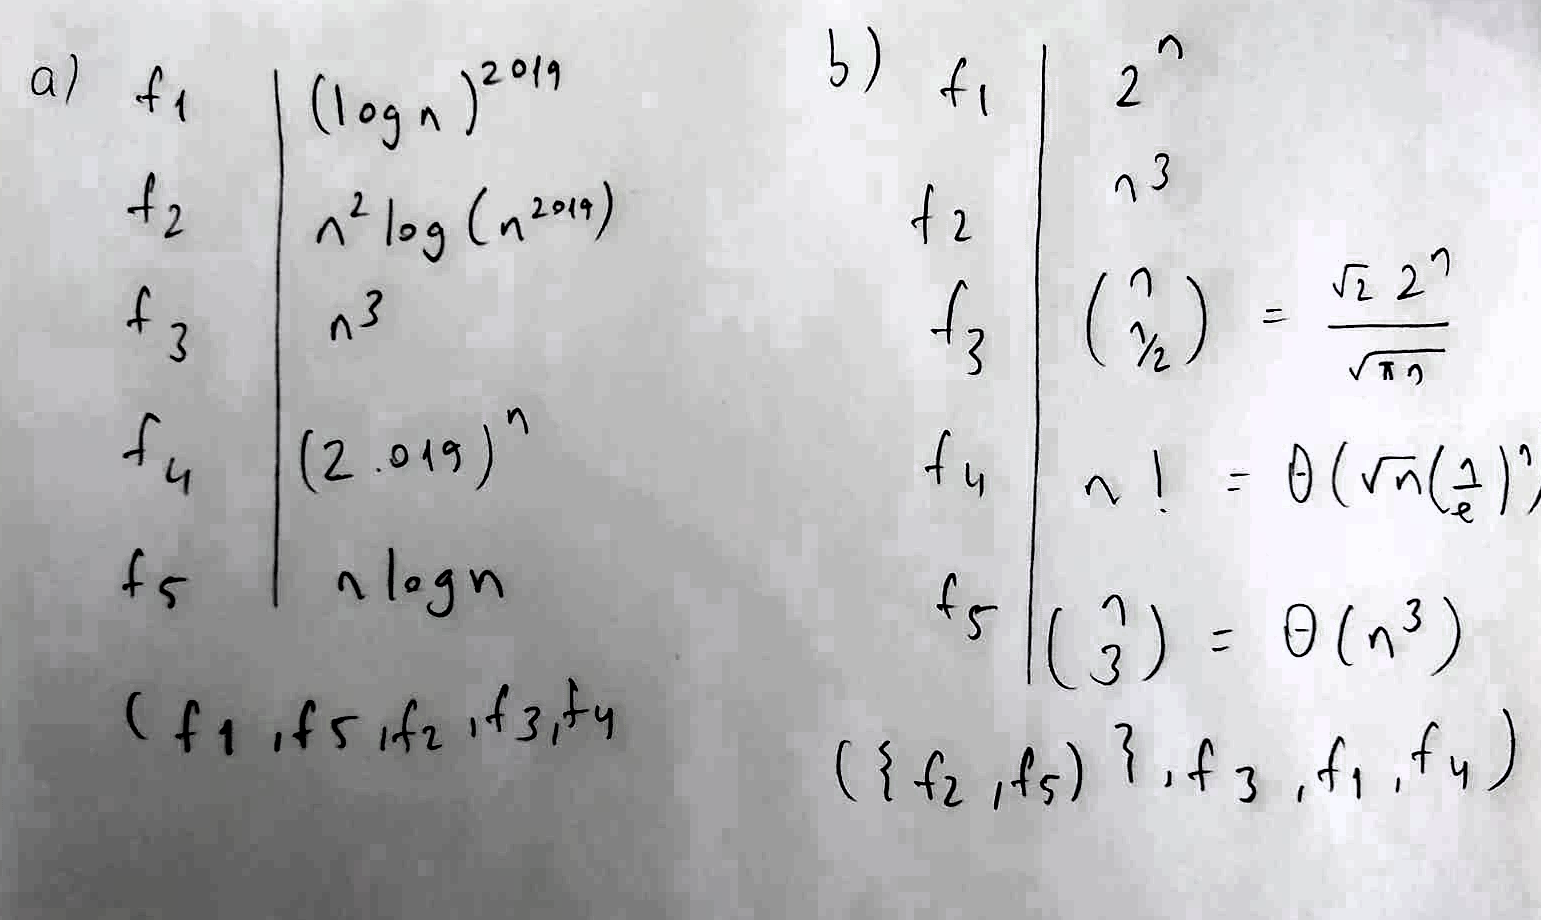 a) f1 | (log n)^2019
f2 | n^2 log (n^2019)
f3 | n^3
f4 | (2.019)^n
f5 | n log n
(f1, f5, f2, f3, f4
b) f1 | 2^n
f2 | n^3
f3 | (n n/2) = √2 2^n / √πn
f4 | n! = θ(√n(1/e)^n)
f5 | (n 3) = θ(n^3)
({f2, f5)}, f3, f1, f4)